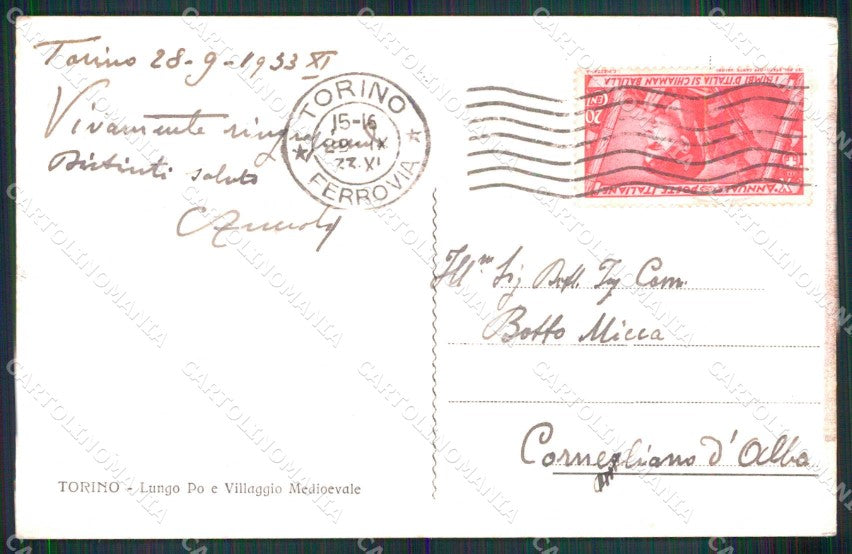 Torino 28-9-1933 XI
Vivamente
Distinti saluti
TORINO
15-16
IX
XI
FERROVIA
I BIMBI D'ITALIA SI CHIAMAN BALILLA
CENT 20
X ANNUALE POSTE ITALIANE
Ill.m Sig Prof. Ing Com.
Botto Micca
Cornegliano d'Alba
TORINO - Lungo Po e Villaggio Medioevale
CARTOLINOMANIA